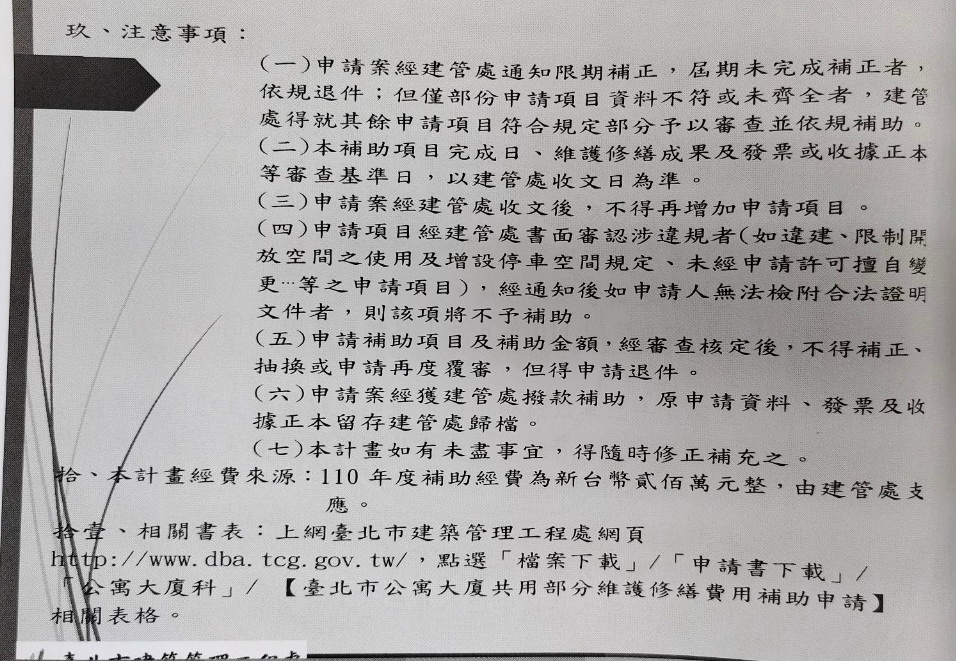 玖、注意事項：
(一)申請案經建管處通知限期補正，屆期未完成補正者，
依規退件；但僅部份申請項目資料不符或未齊全者，建管
處得就其餘申請項目符合規定部分予以審查並依規補助。
(二)本補助項目完成日、維護修繕成果及發票或收據正本
等審查基準日，以建管處收文日為準。
(三)申請案經建管處收文後，不得再增加申請項目。
(四)申請項目經建管處書面審認涉違規者(如違建、限制開
放空間之使用及增設停車空間規定、未經申請許可擅自變
更…等之申請項目)，經通知後如申請人無法檢附合法證明
文件者，則該項將不予補助。
(五)申請補助項目及補助金額，經審查核定後，不得補正、
抽換或申請再度覆審，但得申請退件。
(六)申請案經獲建管處撥款補助，原申請資料、發票及收
據正本留存建管處歸檔。
(七)本計畫如有未盡事宜，得隨時修正補充之。
拾、本計畫經費來源：110 年度補助經費為新台幣貳佰萬元整，由建管處支
應。
拾壹、相關書表：上網臺北市建築管理工程處網頁
http://www.dba.tcg.gov.tw/，點選「檔案下載」/「申請書下載」/
「公寓大廈科」/ 【臺北市公寓大廈共用部分維護修繕費用補助申請】
相關表格。
臺北市建築管理工程處